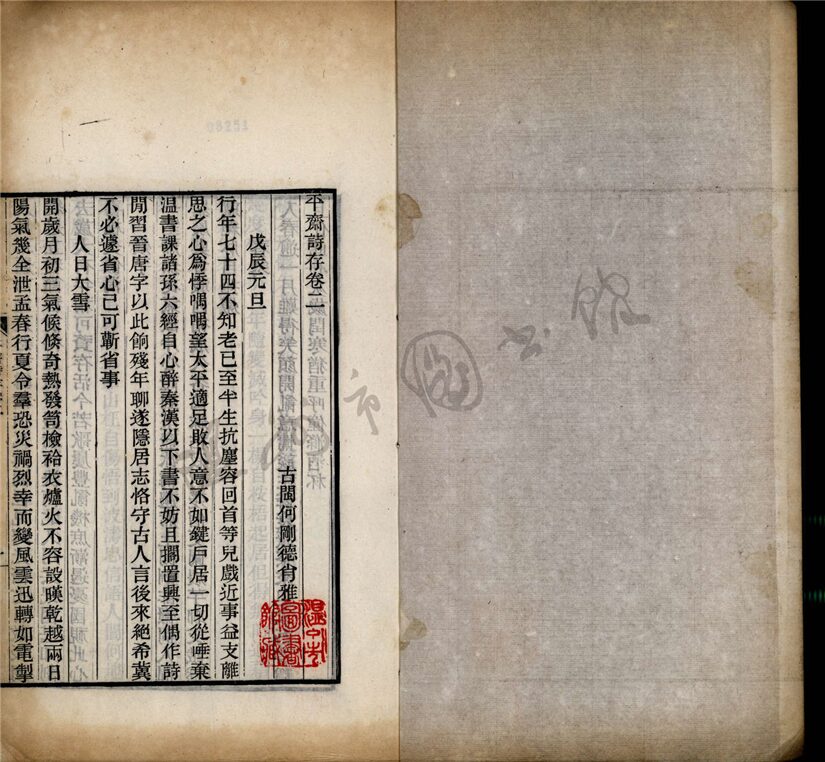 平齋詩存卷二
古閩何剛德肖雅
戊辰元旦
行年七十四不知老已至半生抗塵容回首等兒戲近事益支離
思之心為悸喁喁望太平適足敗人意不如鍵戸居一切從唾棄
温書課諸孫六經自心醉秦漢以下書不妨且擱置興至偶作詩
閒習晉唐字以此餉殘年聊遂隱居志恪守古人言後來絕希冀
不必遽省心已可蘄省事
人日大雪
開歲月初三氣候倐奇熱發笥檢袷衣爐火不容設暵乾越兩日
陽氣幾全泄孟春行夏令羣恐災禍烈幸而變風雲迅轉如電掣
温州市圖書館藏
08251
市圖書館